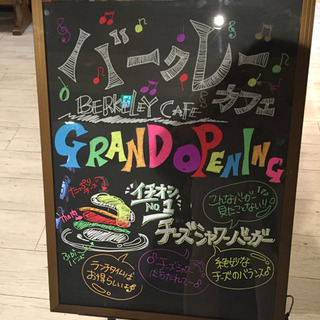 バークレー
カフェ
BERKELEY CAFE
GRAND OPENING
イチオシ
No.1
チーズシャワーバーガー
こんなバーガー
見たことない!!
たっぷり
ランチタイムは
お得らしいよ
チーズシャワー
絶妙な
チーズのバランス